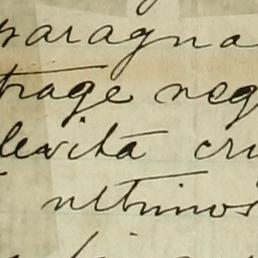 paragna
trage neg
levità cru
ultimos